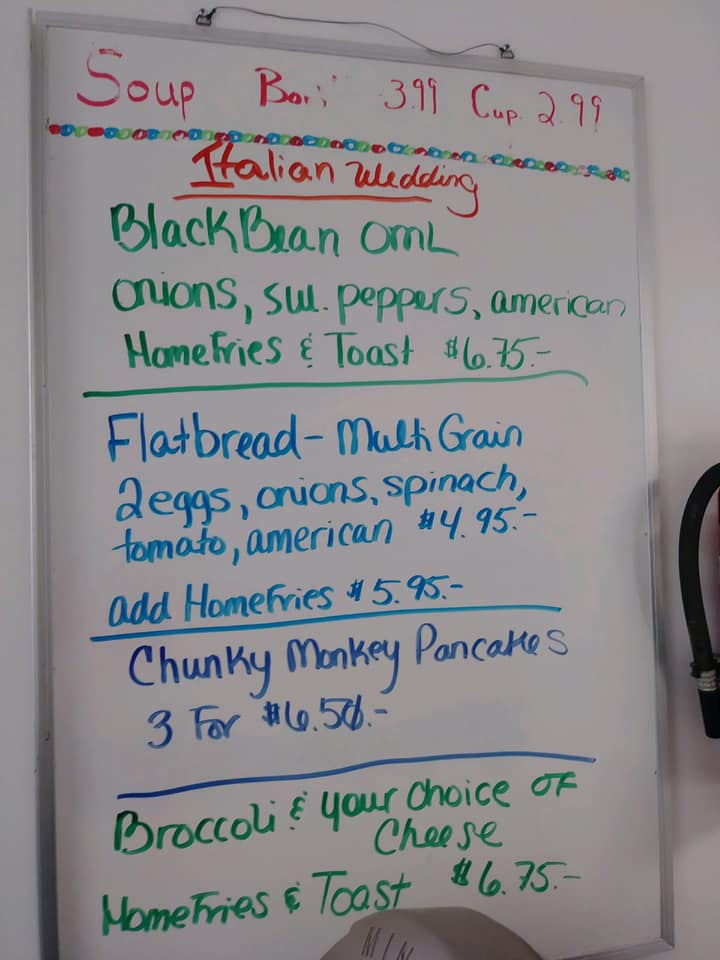 Soup 3.99 Cup 2.99
Italian Wedding
Black Bean OmL
onions, sw. peppers, american
HomeFries & Toast $6.75.-
Flatbread - Multi Grain
2eggs, onions, spinach,
tomato, american $4.95.-
add HomeFries $5.95.-
Chunky Monkey Pancakes
3 For $6.50.-
Broccoli & your choice OF
Cheese
HomeFries & Toast $6.75.-
MIN